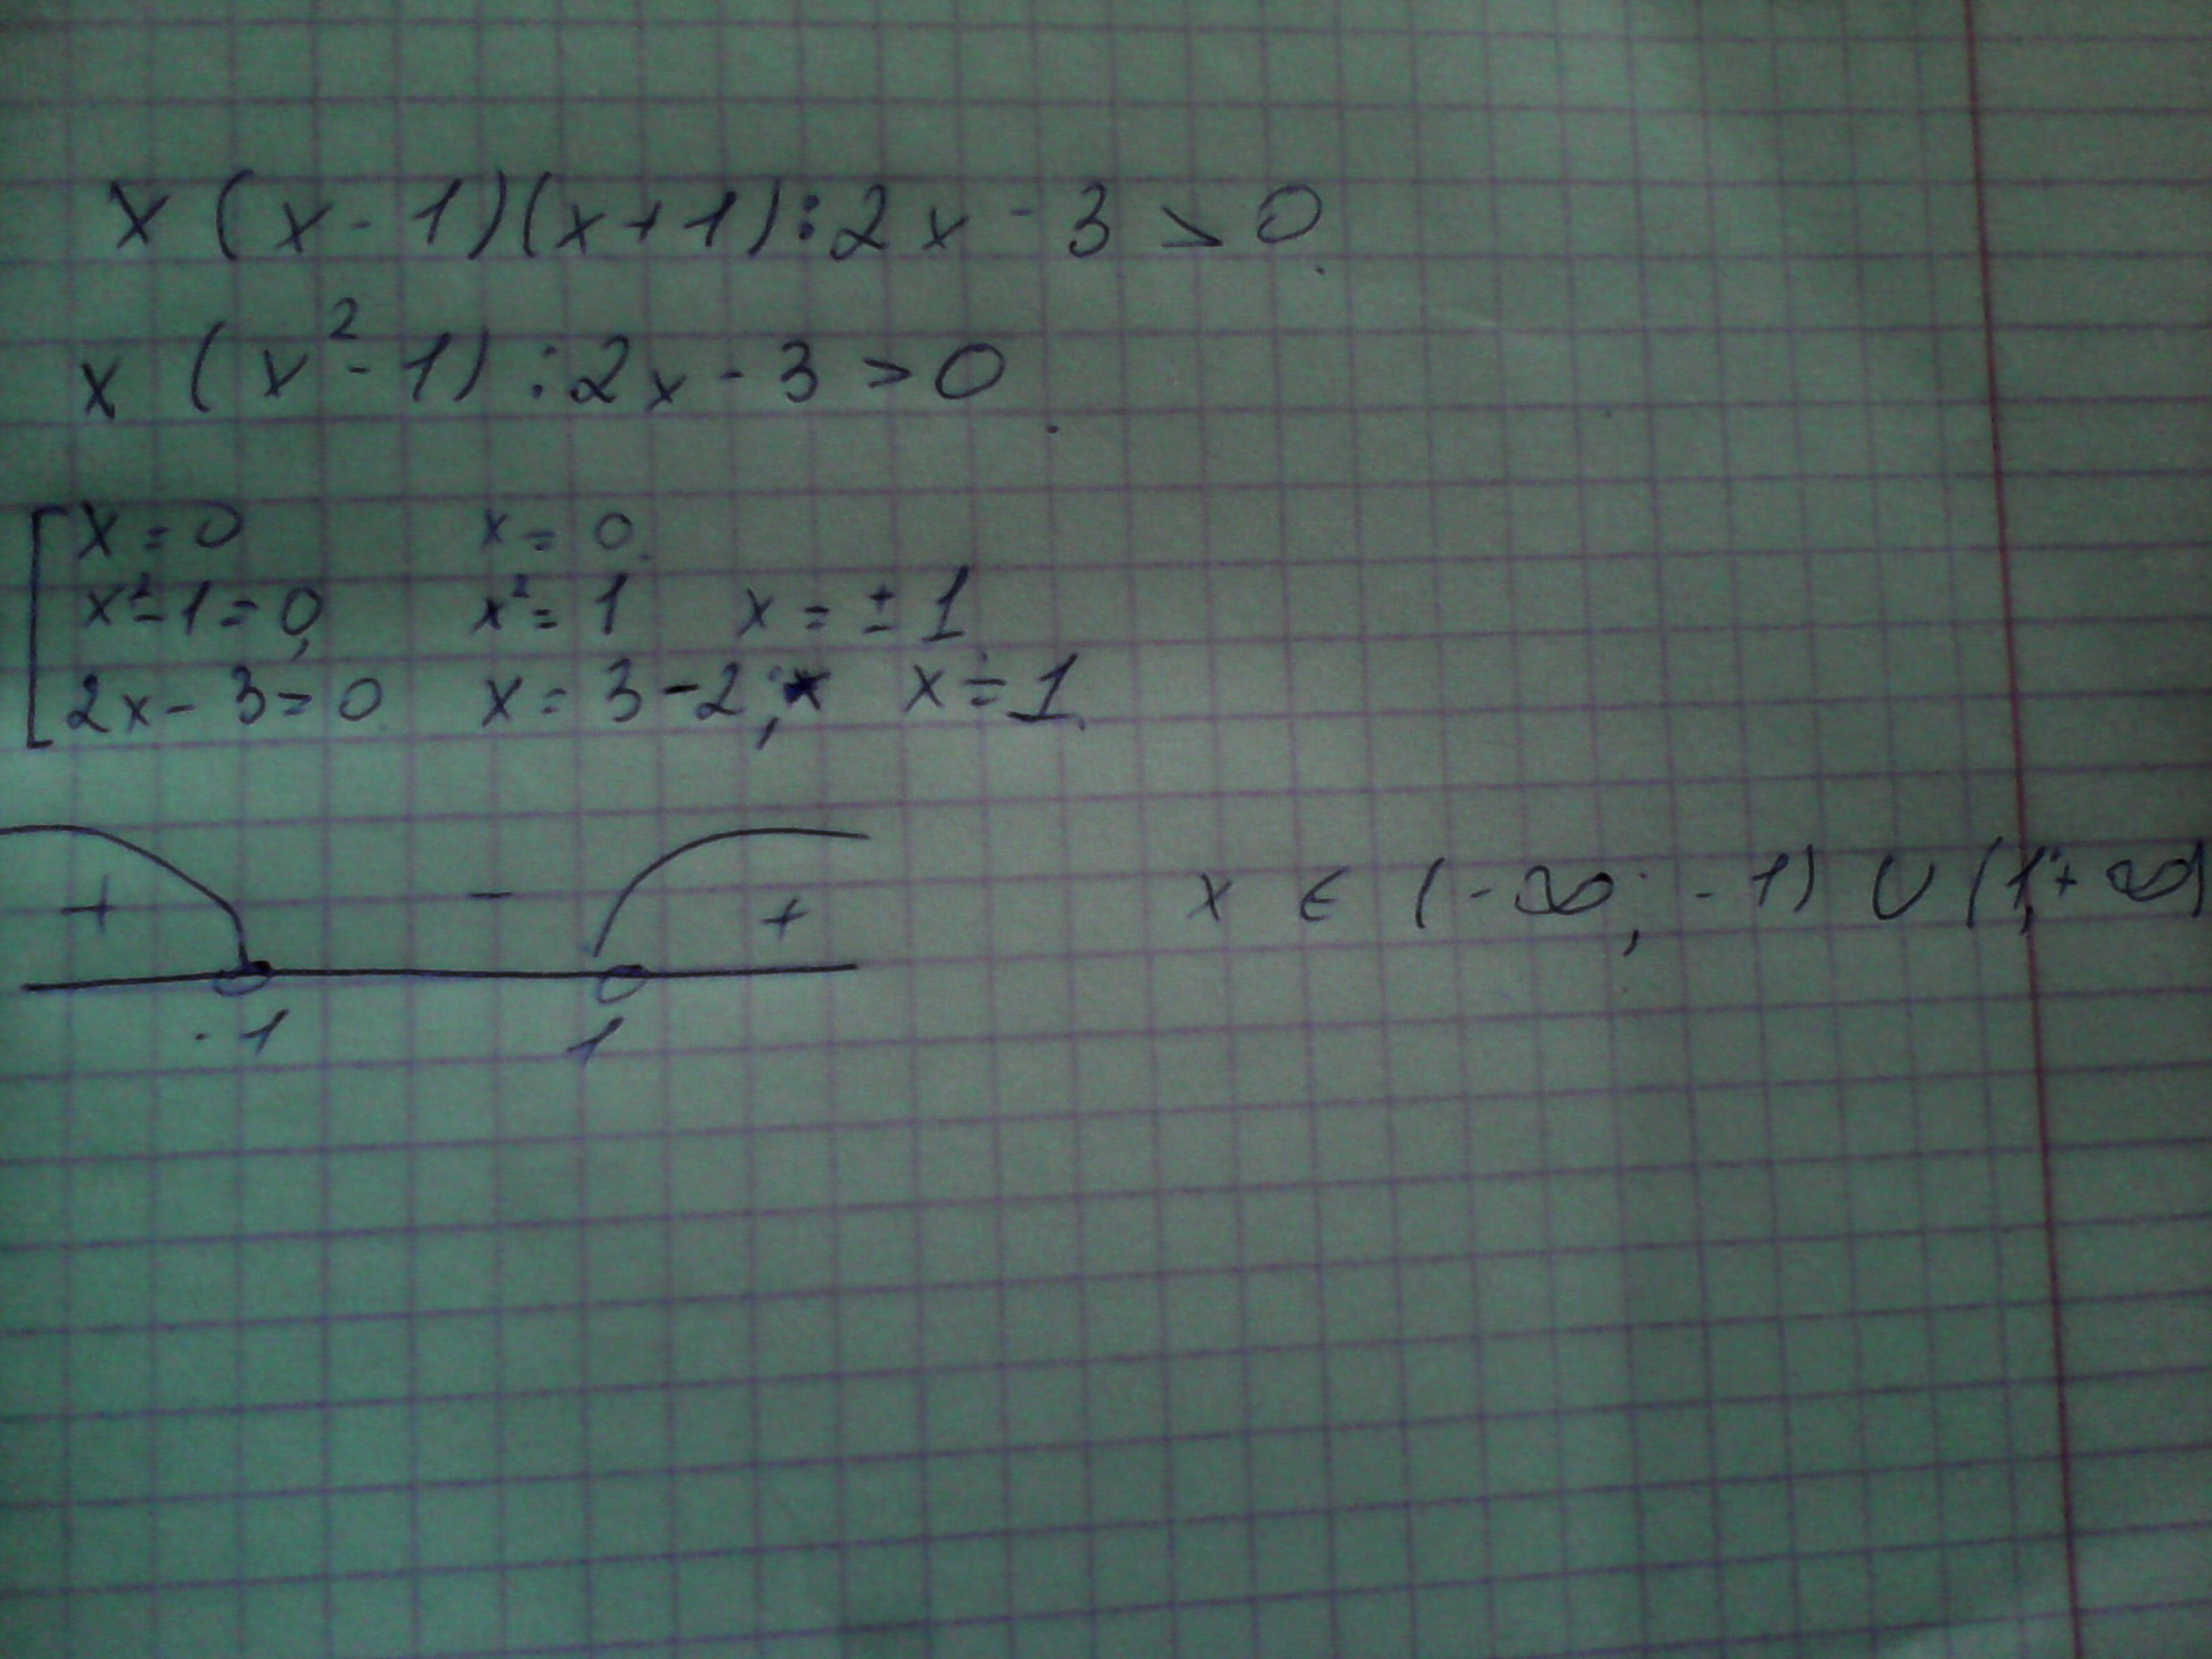 x (x - 1)(x + 1) : 2x - 3 > 0.
x (x² - 1) : 2x - 3 > 0.
x = 0 x = 0.
x² - 1 = 0, x² = 1 x = ± 1
2x - 3 = 0. x = 3 - 2, x = 1.
+ - +
x ∈ (-∞; -1) ∪ (1; +∞)
-1 1